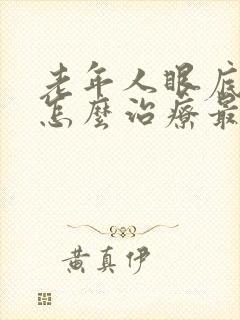 老年人眼底
怎麼治療最
黃真伊